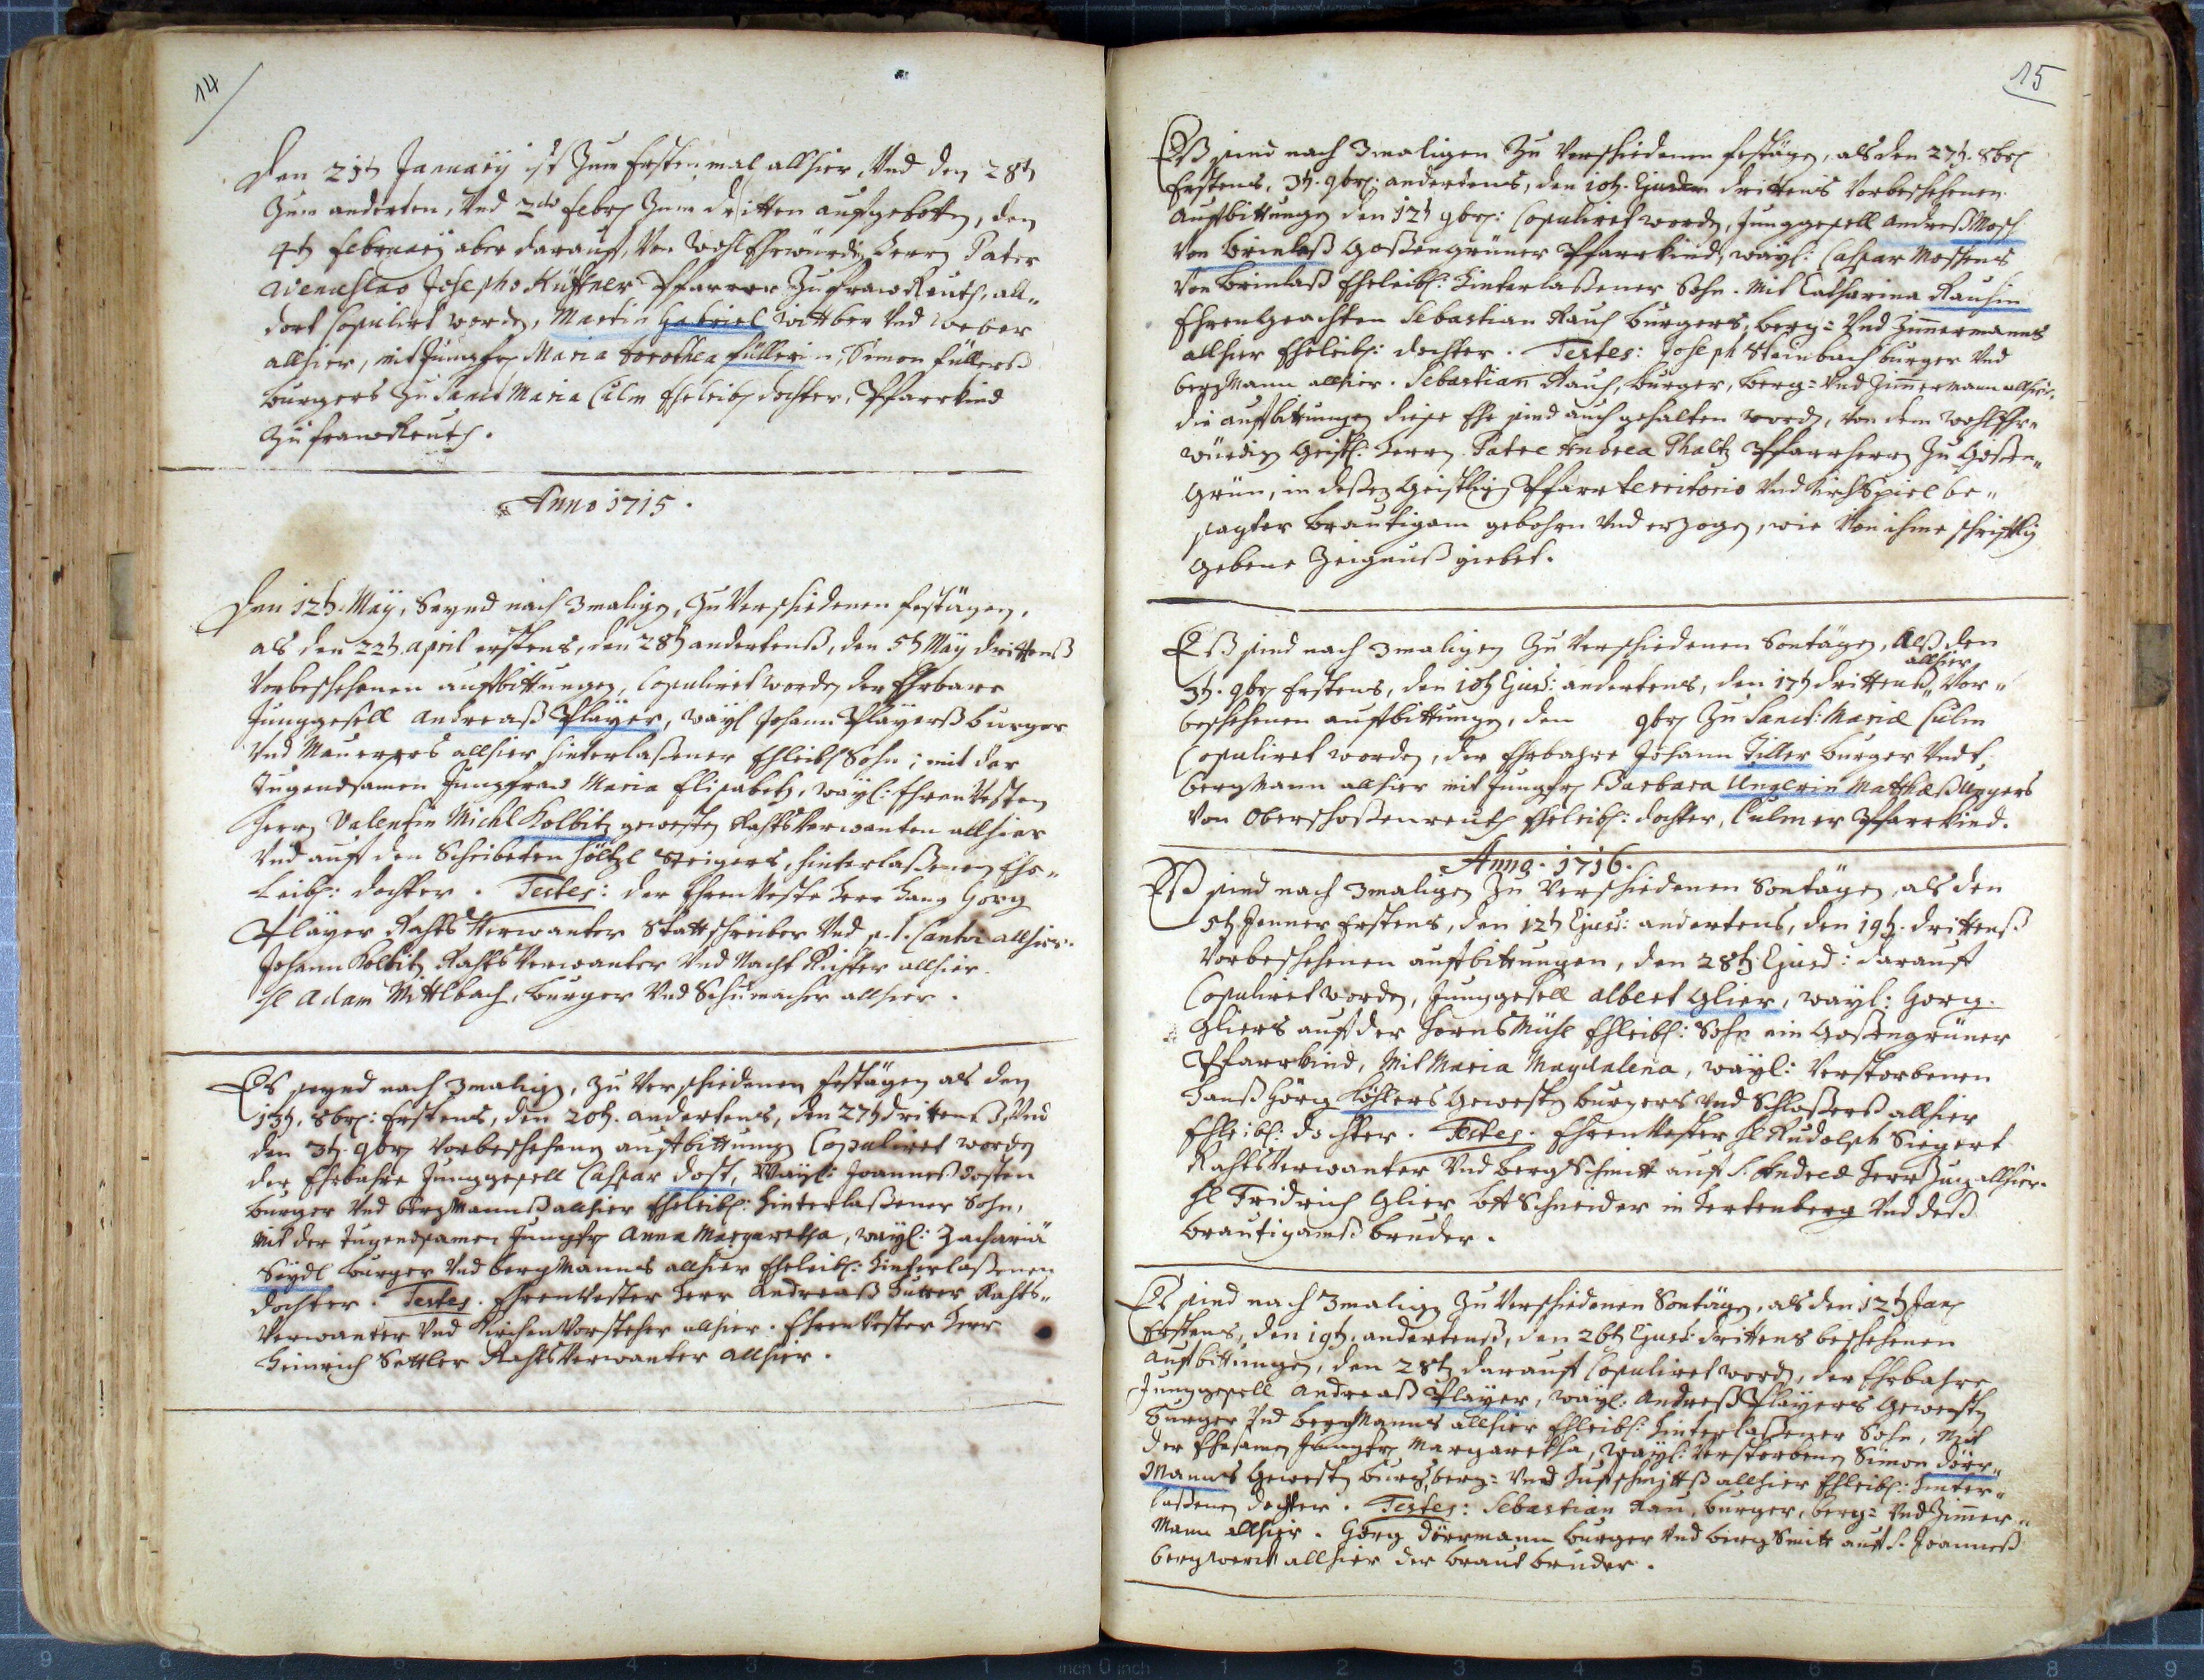 14
Den 21t Januarÿ ist Zum Erstenmal allhier, Vnd den 28t
Zum anderten, Vnd 2do Febr Zum dritten aufgebotten, den
4t Februarÿ aber darauf, Von WohlEhrwürdig Herrn Pater
Wenceslao Josepho Küffner Pfarrer Zu frawReuth, all„
dort Copulirt worden, Martin Gabriel Wittber Vnd Weber
allhier, mit Jungfr Maria Dorothea Füllerin, Simon Füllerß
Burgers Zu Sanct Maria Culm Eheleibl dochter, Pfarrkind
Zu frawReuth.
Anno 1715.
Den 12t. Maÿ, Seynd nach 3maligen, Zu Verschiedenen festägen,
als den 22t. april erstens, den 28t andertenß, den 5t Maÿ drittenß
Vorbeschehenen auffbittungen, Copuliret worden der Ehrbare
Junggesell Andreaß Playër, waÿl Johann Playërß burger
Vnd Maurers allhier hinterlaßener Ehleibl Sohn; mit der
Tugendsamen Jungfraw Maria Elisabeth, waÿl: EhrenVesten
Herrn Valentin Michl Kolbitz gewesten RahtsVerwanten allhier
Vnd auff den Steigers, hinterlaßenen Ehe„
Leibl: dochter. Testes: der EhrenVeste Herr Hans Georg
Playër Rahts Verwanter Stattschreiber Vnd p.t. Cantor allhier.
Johann Kolbitz RahtsVerwanter Vnd Richter allhier.
H Adam Mittlbach, burger Vnd Schumacher allhier.
Es seynd nach 3malign, Zu Verschiedenen festägen als den
13t. 8br: Erstens, den 20t. andertens, den 27t drittenß, Vnd
den 3t. 9br Vorbeschehenen auffbittungen Copuliret worden
der Ehrbahre Junggesell Caspar Dost, Waÿl: Joanneß Dosten
burger Vnd BergMannß allhier Eheleibl: Hinterlaßener Sohn,
Mit der Tugendsamen Jungfr Anna Margaretha, waÿl: Zachariä
Seÿdl burger Vnd bergManns allhier Eheleibl: Hinterlaßenen
dochter. Testes. EhrenVester Herr Andreaß Rahts„
Verwanter Vnd KirchenVorsteher allhier. EhrenVester Herr
Heinrich Sattler RahtsVerwanter allhier.
15
Eß sind nach 3maligen Zu Verschiedenen festägen, als den 27t. 8br
Erstens, 3t. 9br: andertens, den 10t. Ejusdem drittens Vorbeschehenen
Auffbittungen den 12t 9br: Copuliret worden, Junggesell Andreß Mosch
Von Brinlaß Goßengrüner Pfarrkind, waÿl: Caspar Moschens
Von Brinlaß Eheleibl: Hinterlaßener Sohn. Mit Catharina Rauhin
EhrenGeachten Sebastian Rauh burgers, Berg= Vnd Zimmermanns
allhier Eheleibl: dochter. Testes: Joseph Steinbach burger Vnd
bergMann allhier. Sebastian Rauh, burger, Berg= Vnd Zimmermann allhier.
Die auffbittungen dieser Ehe sind auch gehalten worden, Von dem WohlEhr„
würdigen Geistl: Herrn Patre Andrea Phaltz Pfarrherrn Zu Goßen„
grün, in deßen Geistligen Pfarrterritorio Vnd KirchSpiel be„
sagter Brautigam gebohrn Vnd erzogen, wie Von ihme schriftlig
gebene Zeignuß giebet.
Eß sind nach 3maligen Zu Verschiedenen Sontägen, Alß den
allhier
3t. 9br Erstens, den 10t Ejusd: andertens, den 17t drittens, Vor„
beschehenen auffbittungen, den 9br Zu Sanct: Mariæ Culm
Copuliret worden, der Ehrbahre Johann Tiller burger Vndt
bergMann allhier mit Jungfr Barbara Ungerin Matthæß Ungers
Von Oberschoßenreuth Eheleibl: dochter, Culmer Pfarrkind.
Anno. 1716.
Eß sind nach 3maligen Zu Verschiedenen Sontägen, als den
5t Jenner Erstens, den 12t Ejusd: andertens, den 19t. drittenß
Vorbeschehenen auffbittungen, den 28t. Ejusd: darauff
Copuliret worden, Junggesell Albert Glier, waÿl: Georg
Gliers auff der HornsMühl Ehleibl: Sohn ein Goßengrüner
Pfarrkind, Mit Maria Magdalena, waÿl: Verstorbenen
Hanß Görg Köhlers Gewesten burgers Vnd Schloßerß allhier
Ehleibl: dochter. Testes. EhrenVester H Rudolph Siegert
RahtsVerwanter Vnd BergSchmitt auff S. Andreæ allhier.
H Fridrich Glier Schneider in Hertenberg Vnd deß
brautigamß bruder.
Es sind nach 3malign Zu Verschiedenen Sontägen, als den 12t Jan
Erstens, den 19t. andertenß, den 26t Ejusd: drittens beschehenen
Auffbittungen, den 28t darauff Copuliret worden, der Ehrbahre
Junggesell Andreaß Playër, waÿl: Andreß Playërs Gewesten
burger Vnd bergManns allhier Ehleibl: Hinterlaßener Sohn, Mit
der Ehrsamen Jungfr Margaretha, waÿl: Verstorbenen Simon Dörr„
Manns Gewesten burgs, berg= Vnd Hufschmittß allhier Ehleibl: Hinter„
laßenen dochter. Testes: Sebastian Rau, burger, berg= Vnd Zimmer„
Mann allhier. Görg Dörrmann burger Vnd bergSmitt auff S. Joanneß
bergwerck allhier der braut bruder.